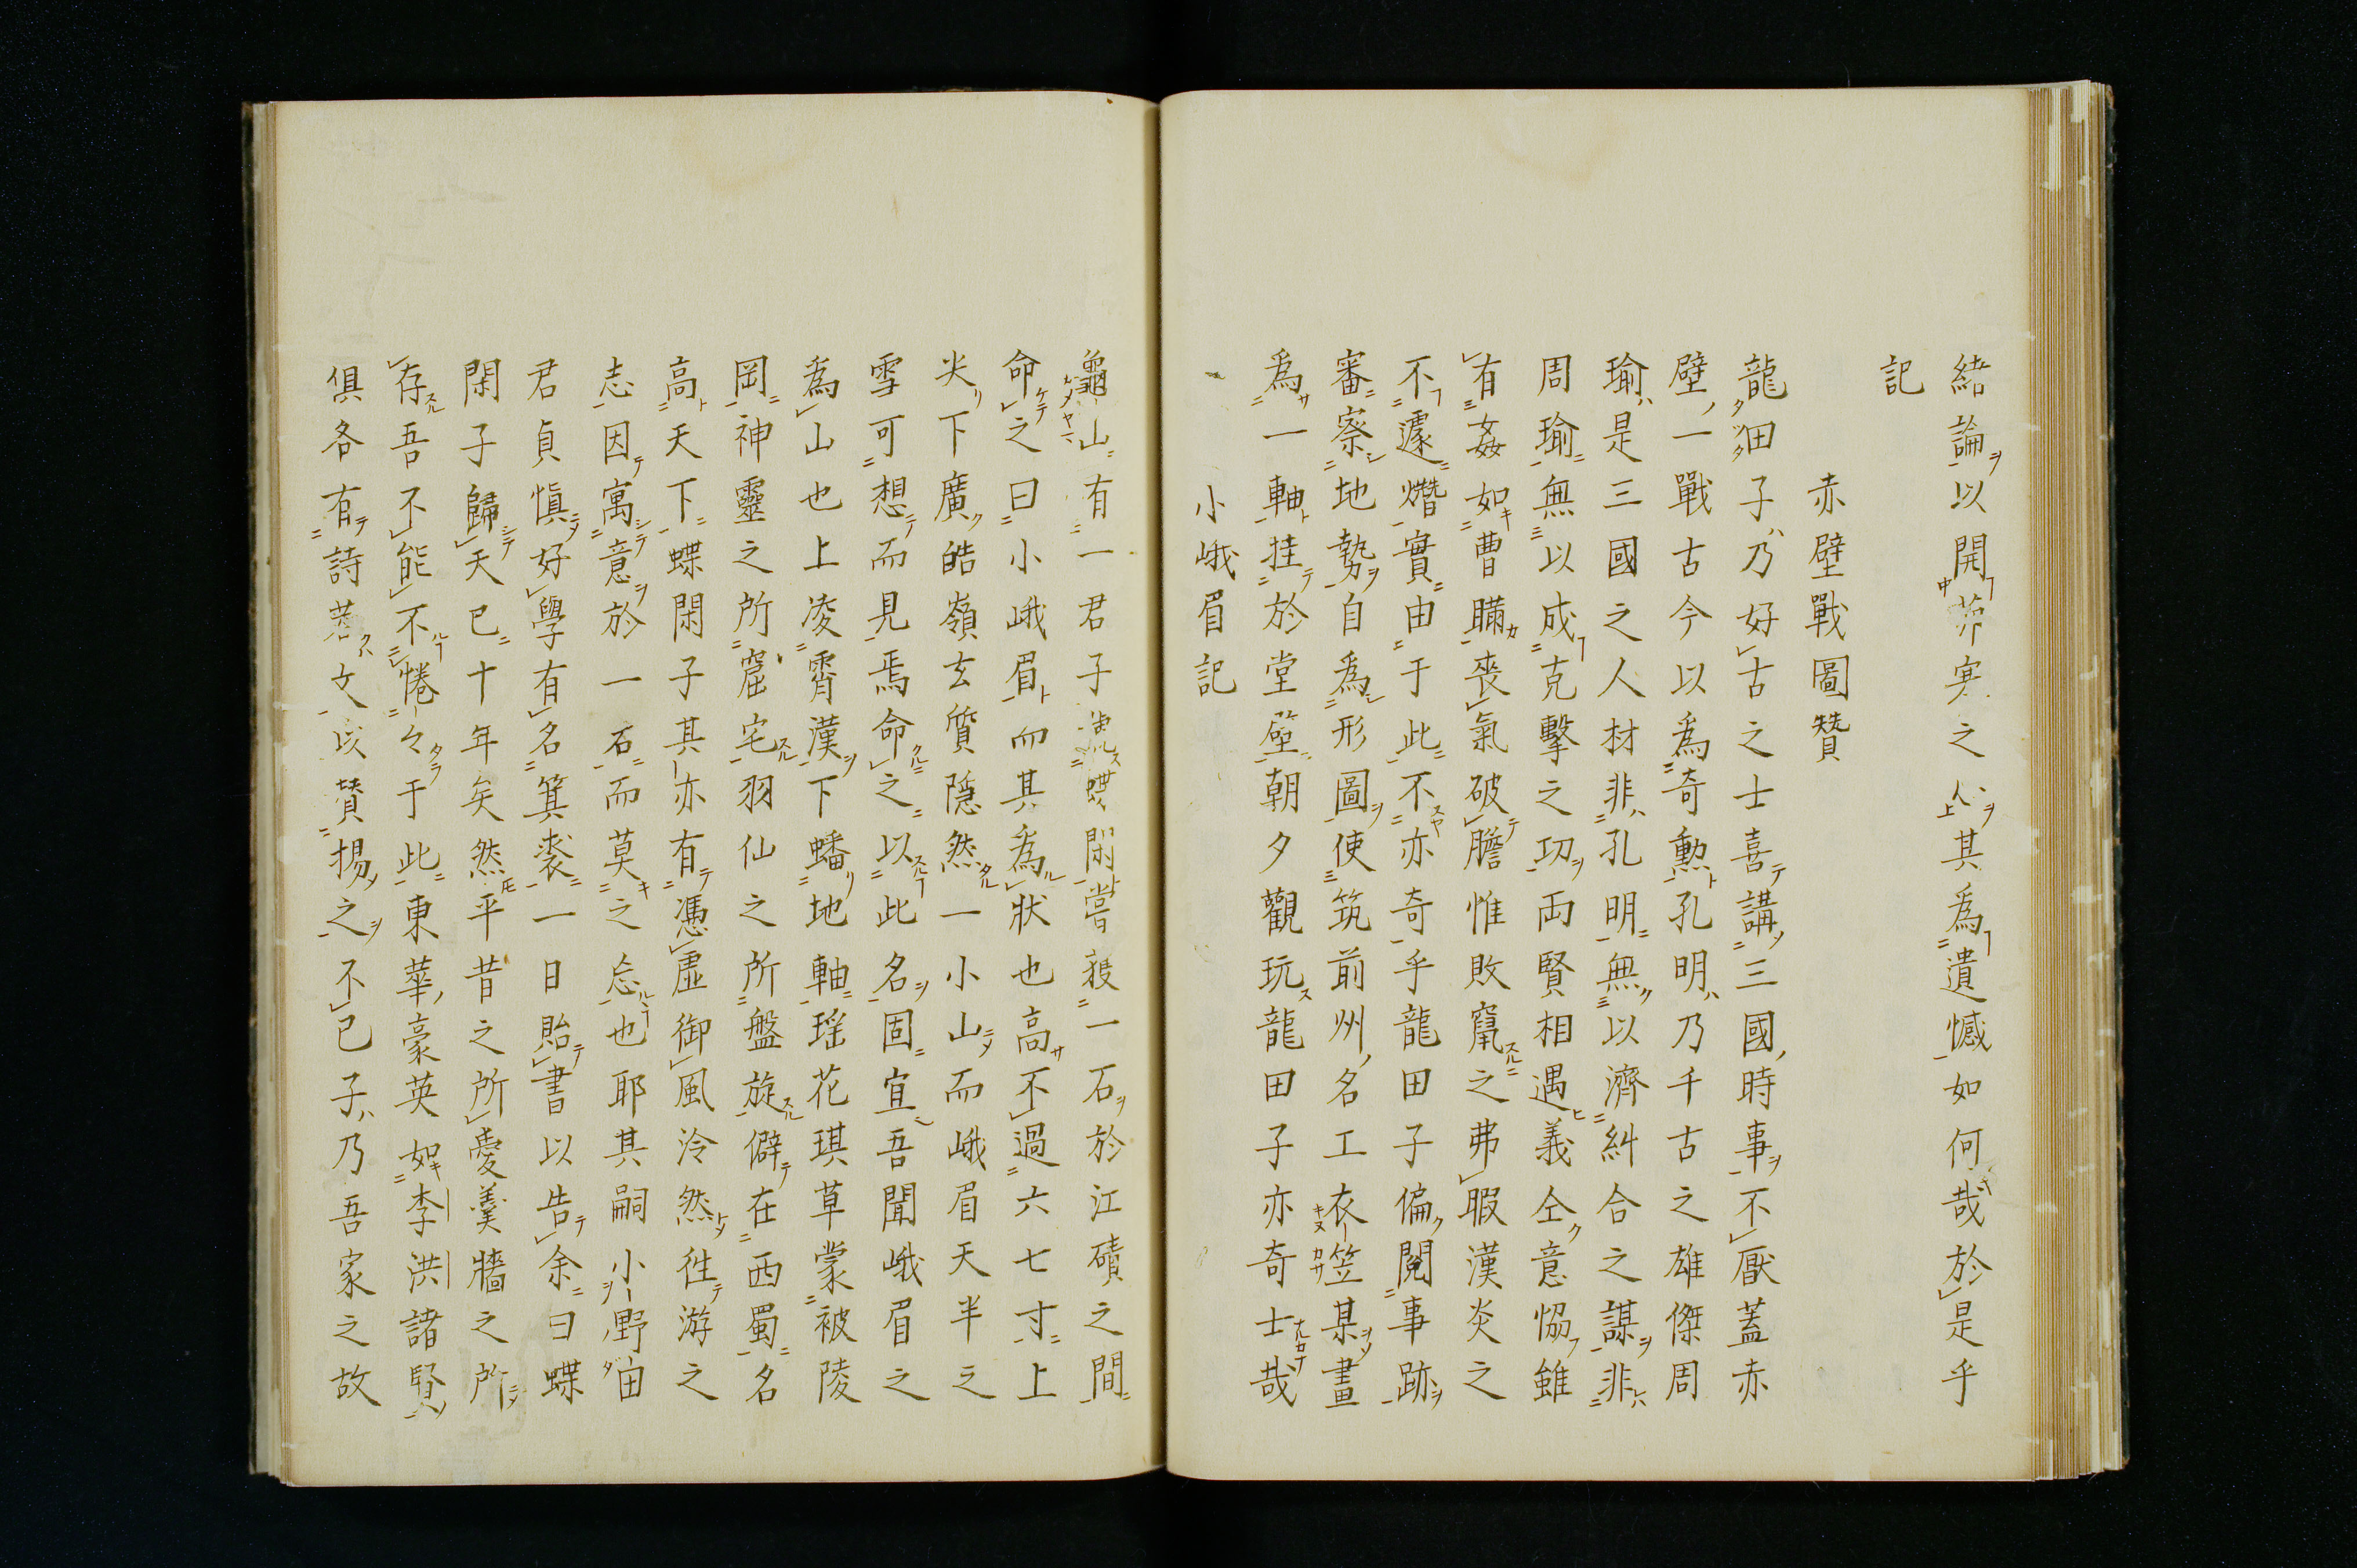 緒論以開茆寞之人其為遺憾如何哉於是乎
記
赤壁戰圖贊
龍田子乃好古之士喜講三國時事不厭蓋赤
壁一戰古今以為奇勲孔明乃千古之雄傑周
瑜是三國之人材非孔明無以濟糾合之謀非
周瑜無以成克擊之功両賢相遇義仝意恊雖
有姦如曹瞞喪氣破膽惟敗竄之弗暇漢炎之
不遽熸實由于此不亦奇乎龍田子偏閱事跡
審察地勢自為形圖使筑前州名工衣笠某畫
為一軸挂於堂壁朝夕觀玩龍田子亦奇士哉
小峨眉記
龜山有一君子號蝶閑嘗獲一石於江磧之間
命之曰小峨眉而其為狀也高不過六七寸上
尖下廣皓嶺玄質隱然一小山而峨眉天半之
雪可想而見焉命之以此名固宜吾聞峨眉之
為山也上凌霄漢下蟠地軸瑶花琪草蒙被陵
岡神靈之所窟宅羽仙之所盤旋僻在西蜀名
高天下蝶閑子其亦有憑虛御風泠然徃游之
志因寓意於一石而莫之忘也耶其嗣小野田
君貞愼好學有名箕裘一日貽書以告余曰蝶
閑子歸天已十年矣然平昔之所愛羹牆之所
存吾不能不惓々于此東華豪英如李洪諸賢
俱各有詩若文以賛揚之不已子乃吾家之故